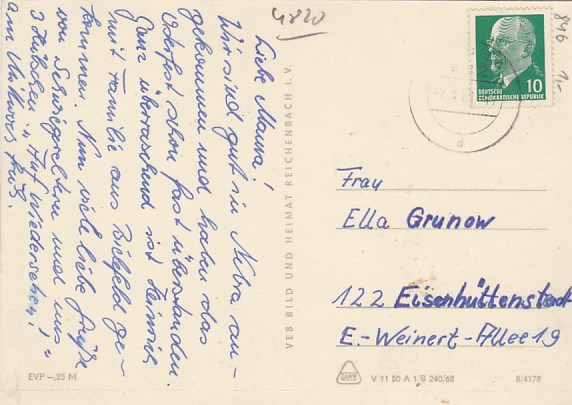 4820
846 1,-
Liebe Mama!
Wir sind gut in Nebra an-
gekommen und haben das
Osterfest schon fast überstanden.
Ganz überraschend ist Heinrich
mit Familie aus Bielefeld ge-
kommen. Nun viele liebe Grüße
von Schwiegereltern und uns
3 Hübschen. "Auf Wiedersehen!"
am Mittwoch früh.
VEB BILD UND HEIMAT REICHENBACH I. V.
10
DEUTSCHE
DEMOKRATISCHE REPUBLIK
d
Frau
Ella Grunow
122 Eisenhüttenstadt
E.-Weinert-Allee 19
EVP -,25 M
V 11 50 A 1 B 240/68
8/4178